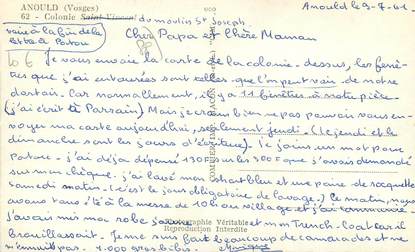 ANOULD (VOSGES)
Anould le 9-7-61
62 - Colonie Saint Vincent du moulin St Joseph.
voir à la fin de la lettre à
Cher Papa et Chère Maman
Je vous envoie la carte de la colonie. dessus, les fenê-
tres que j'ai entourées sont celles que l'on peut voir de notre
dortoir. Car normallement, il y a 11 fenêtres à notre pièce
(j'ai écrit à Parrain) Mais je crois bien ne pas pouvoir vous en-
voyer ma carte aujourd'hui, seulement jeudi. (le jeudi et le
dimanche sont les jours d'écriture). Je joins un mot pour
j'ai déjà dépensé 130F sur les 300F que j'avais demandé
sur mon chèque. j'ai lavé mon short bleu et une paire de socquette
samedi matin. (c'est le jour obligatoire de lavage.) Ce matin, nous
avons tous été à la messe de 10h au village et j'ai communié
j'avais mis ma robe et mon Trench-Coat car il
Photographie Véritable
brouillassait. Je me suis fait beaucoup de camarades et on
Reproduction Interdite
1.000 gros bibis